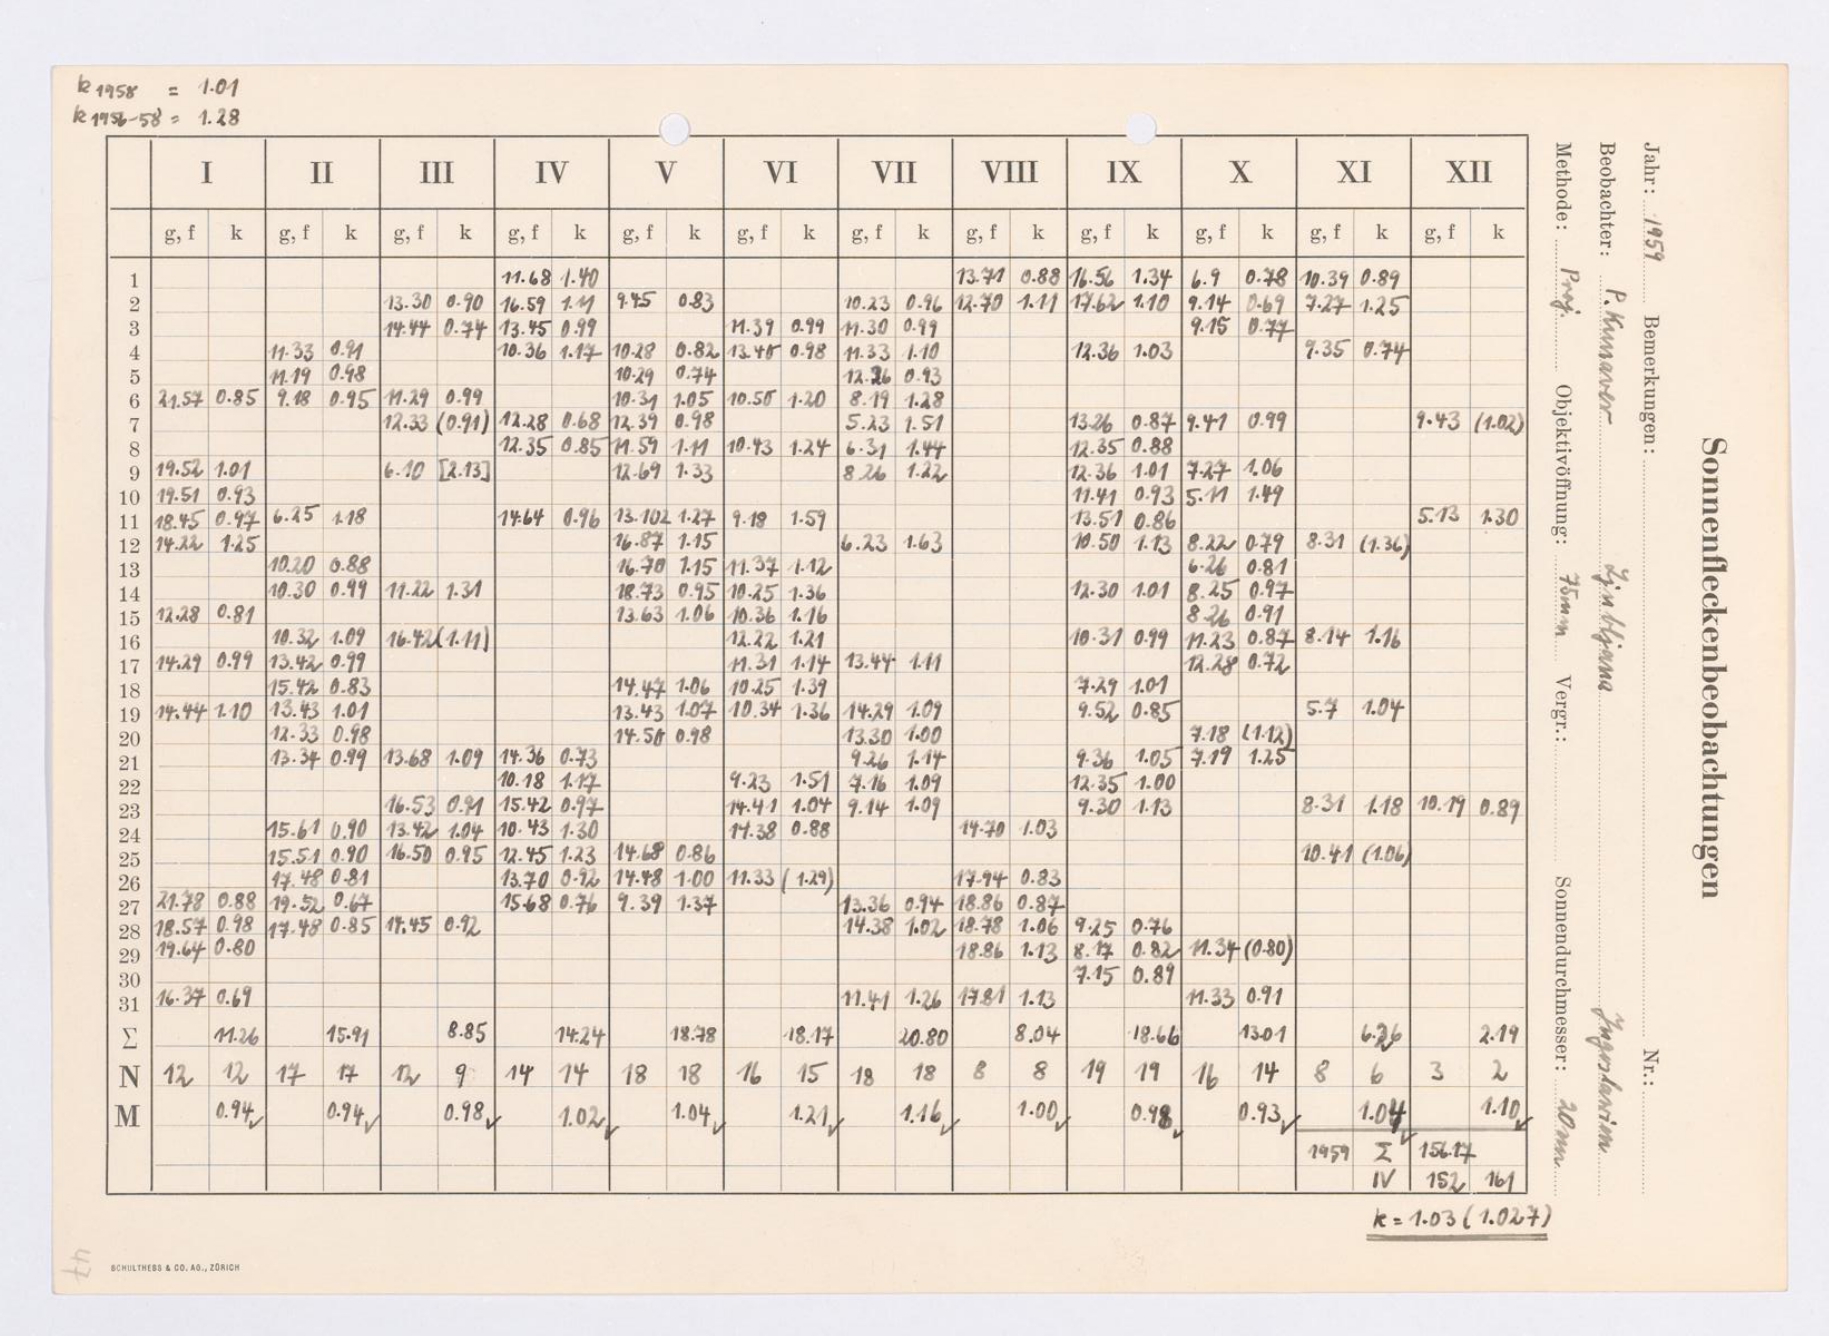 k 1958 = 1.01
k 1956-58 = 1.28
Sonnenfleckenbeobachtungen
Jahr: 1959 Bemerkungen: Nr.:
Beobachter: P. Kunaver Ljubljana Jugoslavien
Methode: Proj. Objektivöffnung: 75mm Vergr.: Sonnendurchmesser: 20 cm
I II III IV V VI VII VIII IX X XI XII
g, f k g, f k g, f k g, f k g, f k g, f k g, f k g, f k g, f k g, f k g, f k g, f k
1 11.68 1.40 13.71 0.88 16.56 1.34 6.9 0.78 10.39 0.89
2 13.30 0.90 16.59 1.11 9.45 0.83 10.23 0.96 12.70 1.11 17.62 1.10 9.14 0.69 7.27 1.25
3 14.44 0.74 13.45 0.99 11.39 0.99 11.30 0.99 9.15 0.77
4 11.33 0.91 10.36 1.17 10.28 0.82 13.40 0.98 11.33 1.10 12.36 1.03 9.35 0.74
5 11.19 0.98 10.29 0.74 12.26 0.93
6 21.57 0.85 9.18 0.95 11.29 0.99 10.31 1.05 10.50 1.20 8.19 1.28
7 12.33 (0.91) 12.28 0.68 12.39 0.98 5.23 1.51 13.26 0.87 9.41 0.99 9.43 (1.02)
8 12.35 0.85 11.59 1.11 10.43 1.24 6.31 1.44 12.35 0.88
9 19.52 1.01 6.10 [2.13] 12.69 1.33 8.26 1.22 12.36 1.01 7.27 1.06
10 19.51 0.93 11.41 0.93 5.11 1.49
11 18.45 0.97 6.25 1.18 14.64 0.96 13.102 1.27 9.18 1.59 13.51 0.86 5.13 1.30
12 14.22 1.25 16.87 1.15 6.23 1.63 10.50 1.13 8.22 0.79 8.31 (1.36)
13 10.20 0.88 16.70 1.15 11.37 1.12 6.26 0.81
14 10.30 0.99 11.22 1.31 18.73 0.95 10.25 1.36 12.30 1.01 8.25 0.97
15 12.28 0.81 13.63 1.06 10.36 1.16 8.26 0.91
16 10.32 1.09 16.42 (1.11) 12.22 1.21 10.31 0.99 11.23 0.87 8.14 1.16
17 14.29 0.99 13.42 0.99 11.31 1.14 13.44 1.11 12.28 0.72
18 15.42 0.83 14.47 1.06 10.25 1.39 7.29 1.01
19 14.44 1.10 13.43 1.01 13.43 1.07 10.34 1.36 14.29 1.09 9.52 0.85 5.7 1.04
20 12.33 0.98 14.50 0.98 13.30 1.00 7.18 (1.12)
21 13.34 0.99 13.68 1.09 14.36 0.73 9.26 1.14 9.36 1.05 7.19 1.25
22 10.18 1.17 9.23 1.51 7.16 1.09 12.35 1.00
23 16.53 0.91 15.42 0.97 14.41 1.04 9.14 1.09 9.30 1.13 8.31 1.18 10.19 0.89
24 15.61 0.90 13.42 1.04 10.43 1.30 14.38 0.88 14.70 1.03
25 15.51 0.90 16.50 0.95 12.45 1.23 14.68 0.86 10.41 (1.06)
26 17.48 0.81 13.70 0.92 14.48 1.00 11.33 (1.29) 17.94 0.83
27 21.78 0.88 19.52 0.67 15.68 0.76 9.39 1.37 13.36 0.94 18.86 0.87
28 18.57 0.98 17.48 0.85 14.45 0.92 14.38 1.02 18.78 1.06 9.25 0.76
29 19.64 0.80 18.86 1.13 8.17 0.82 11.34 (0.80)
30 7.15 0.89
31 16.37 0.69 11.41 1.26 17.81 1.13 11.33 0.91
Σ 11.26 15.91 8.85 14.24 18.78 18.17 20.80 8.04 18.66 13.01 6.26 2.19
N 12 12 17 17 12 9 14 14 18 18 16 15 18 18 8 8 19 19 16 14 8 6 3 2
M 0.94 0.94 0.98 1.02 1.04 1.21 1.16 1.00 0.98 0.93 1.04 1.10
1959 Σ 156.17
IV 152 161
k = 1.03 (1.027)
47
SCHULTHESS & CO. AG., ZÜRICH